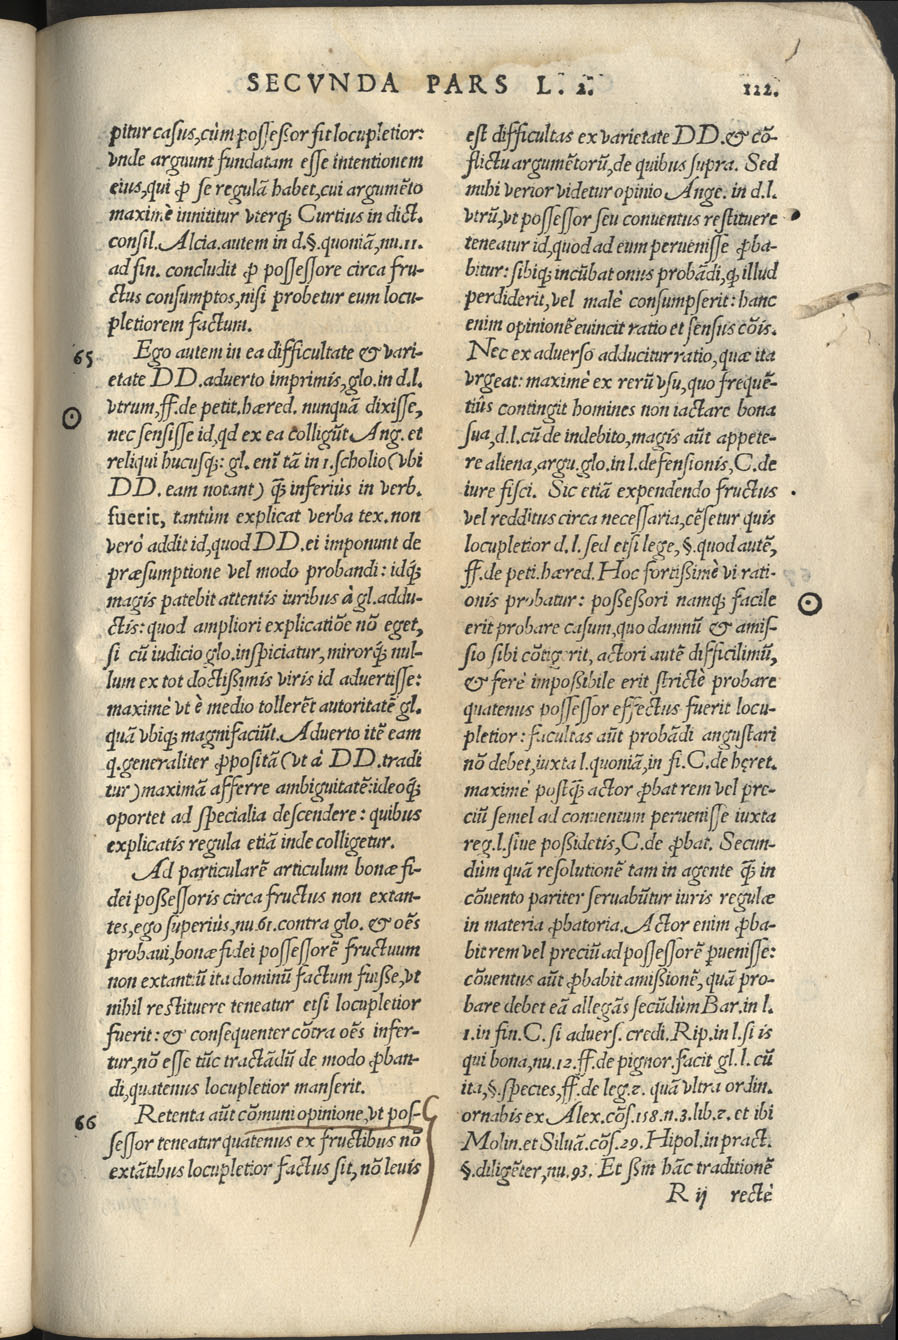 SECVNDA PARS L. 2. 122.
pitur casus, cùm possessor fit locupletior:
vnde arguunt fundatam esse intentionem
eius, qui ꝓ se regulã habet, cui argumẽto
maximè innititur vterq; Curtius in dict.
consil. Alcia. autem in d. §. quoniã, nu. 11.
ad fin. concludit ꝓ possessore circa fru-
ctus consumptos, nisi probetur eum locu-
pletiorem factum.
65 Ego autem in ea difficultate & vari-
etate DD. aduerto imprimis, glo. in d. l.
vtrum, ff. de petit. hæred. nunquã dixisse,
nec sensisse id, qd ex ea colligũt Ang. et
reliqui hucusq;: gl. enĩ tã in 1. scholio (vbi
DD. eam notant) q̃ inferiùs in verb.
fuerit, tantùm explicat verba tex. non
verò addit id, quod DD. ei imponunt de
præsumptione vel modo probandi: idq;
magis patebit attentis iuribus à gl. addu-
ctis: quod ampliori explicatiõe nõ eget,
si cũ iudicio glo. inspiciatur, mirorq; nul-
lum ex tot doctissimis viris id aduertisse:
maximè vt è medio tollerẽt autoritatẽ gl.
quã vbiq; magnifaciũt. Aduerto itẽ eam
q. generaliter ꝓpositã (vt à DD. tradi
tur) maximã afferre ambiguitatẽ: ideoq;
oportet ad specialia descendere: quibus
explicatis regula etiã inde colligetur.
Ad particularẽ articulum bonæ fi-
dei possessoris circa fructus non extan-
tes, ego superiùs, nu. 61. contra glo. & oẽs
probaui, bonæ fidei possessorẽ fructuum
non extantiũ ita dominũ factum fuisse, vt
nihil restituere teneatur etsi locupletior
fuerit: & consequenter cõtra oẽs infer-
tur, nõ esse tũc tractãdũ de modo ꝓban-
di, quatenus locupletior manserit.
66 Retenta aũt cõmuni opinione, vt pos-
sessor teneatur quatenus ex fructibus nõ
extãtibus locupletior factus sit, nõ leuis
est difficultas ex varietate DD. & cõ-
flictu argumẽtorũ, de quibus supra. Sed
mihi verior videtur opinio Ange. in d. l.
vtrũ, vt possessor seu conuentus restituere
teneatur id, quod ad eum peruenisse ꝓba-
bitur: sibiq; incũbat onus probãdi, q; illud
perdiderit, vel malè consumpserit: hanc
enim opinionẽ euincit ratio et sensus cõis.
Nec ex aduerso adducitur ratio, quæ ita
vrgeat: maximè ex rerũ vsu, quo frequẽ-
tiùs contingit homines non iactare bona
sua, d. l. cũ de indebito, magis aũt appete-
re aliena, argu. glo. in l. defensionis, C. de
iure fisci. Sic etiã expendendo fructus
vel redditus circa necessaria, cẽsetur quis
locupletior d. l. sed etsi lege, §. quod autẽ,
ff. de peti. hæred. Hoc fortissimè vi rati-
onis probatur: possessori namq; facile
erit probare casum, quo damnũ & amis-
sio sibi cõtigerit, actori autẽ difficilimũ,
& ferè impossibile erit strictè probare
quatenus possessor effectus fuerit locu-
pletior: facultas aũt probãdi angustari
nõ debet, iuxta l. quoniã, in fi. C. de hęret.
maximè postq̃ actor ꝓbat rem vel pre-
ciũ semel ad conuentum peruenisse iuxta
reg. l. siue possidetis, C. de ꝓbat. Secun-
dùm quã resolutionẽ tam in agente q̃ in
cõuento pariter seruabũtur iuris regulæ
in materia ꝓbatoria. Actor enim ꝓba-
bit rem vel preciũ ad possessorẽ ꝑuenisse:
cõuentus aũt ꝓbabit amissionẽ, quã pro-
bare debet eã allegãs secũdùm Bar. in l.
1. in fin. C. si aduers. credi. Rip. in l. si is
qui bona, nu. 12. ff. de pignor. facit gl. l. cũ
ita, §. species, ff. de leg. 2. quã vltra ordin.
ornabis ex Alex. cõs. 158. n. 3. lib. 2. et ibi
Molin. et Siluã. cõs. 29. Hipol. in pract.
§. diligẽter, nu. 93. Et sm̃ hãc traditionẽ
R ij rectè